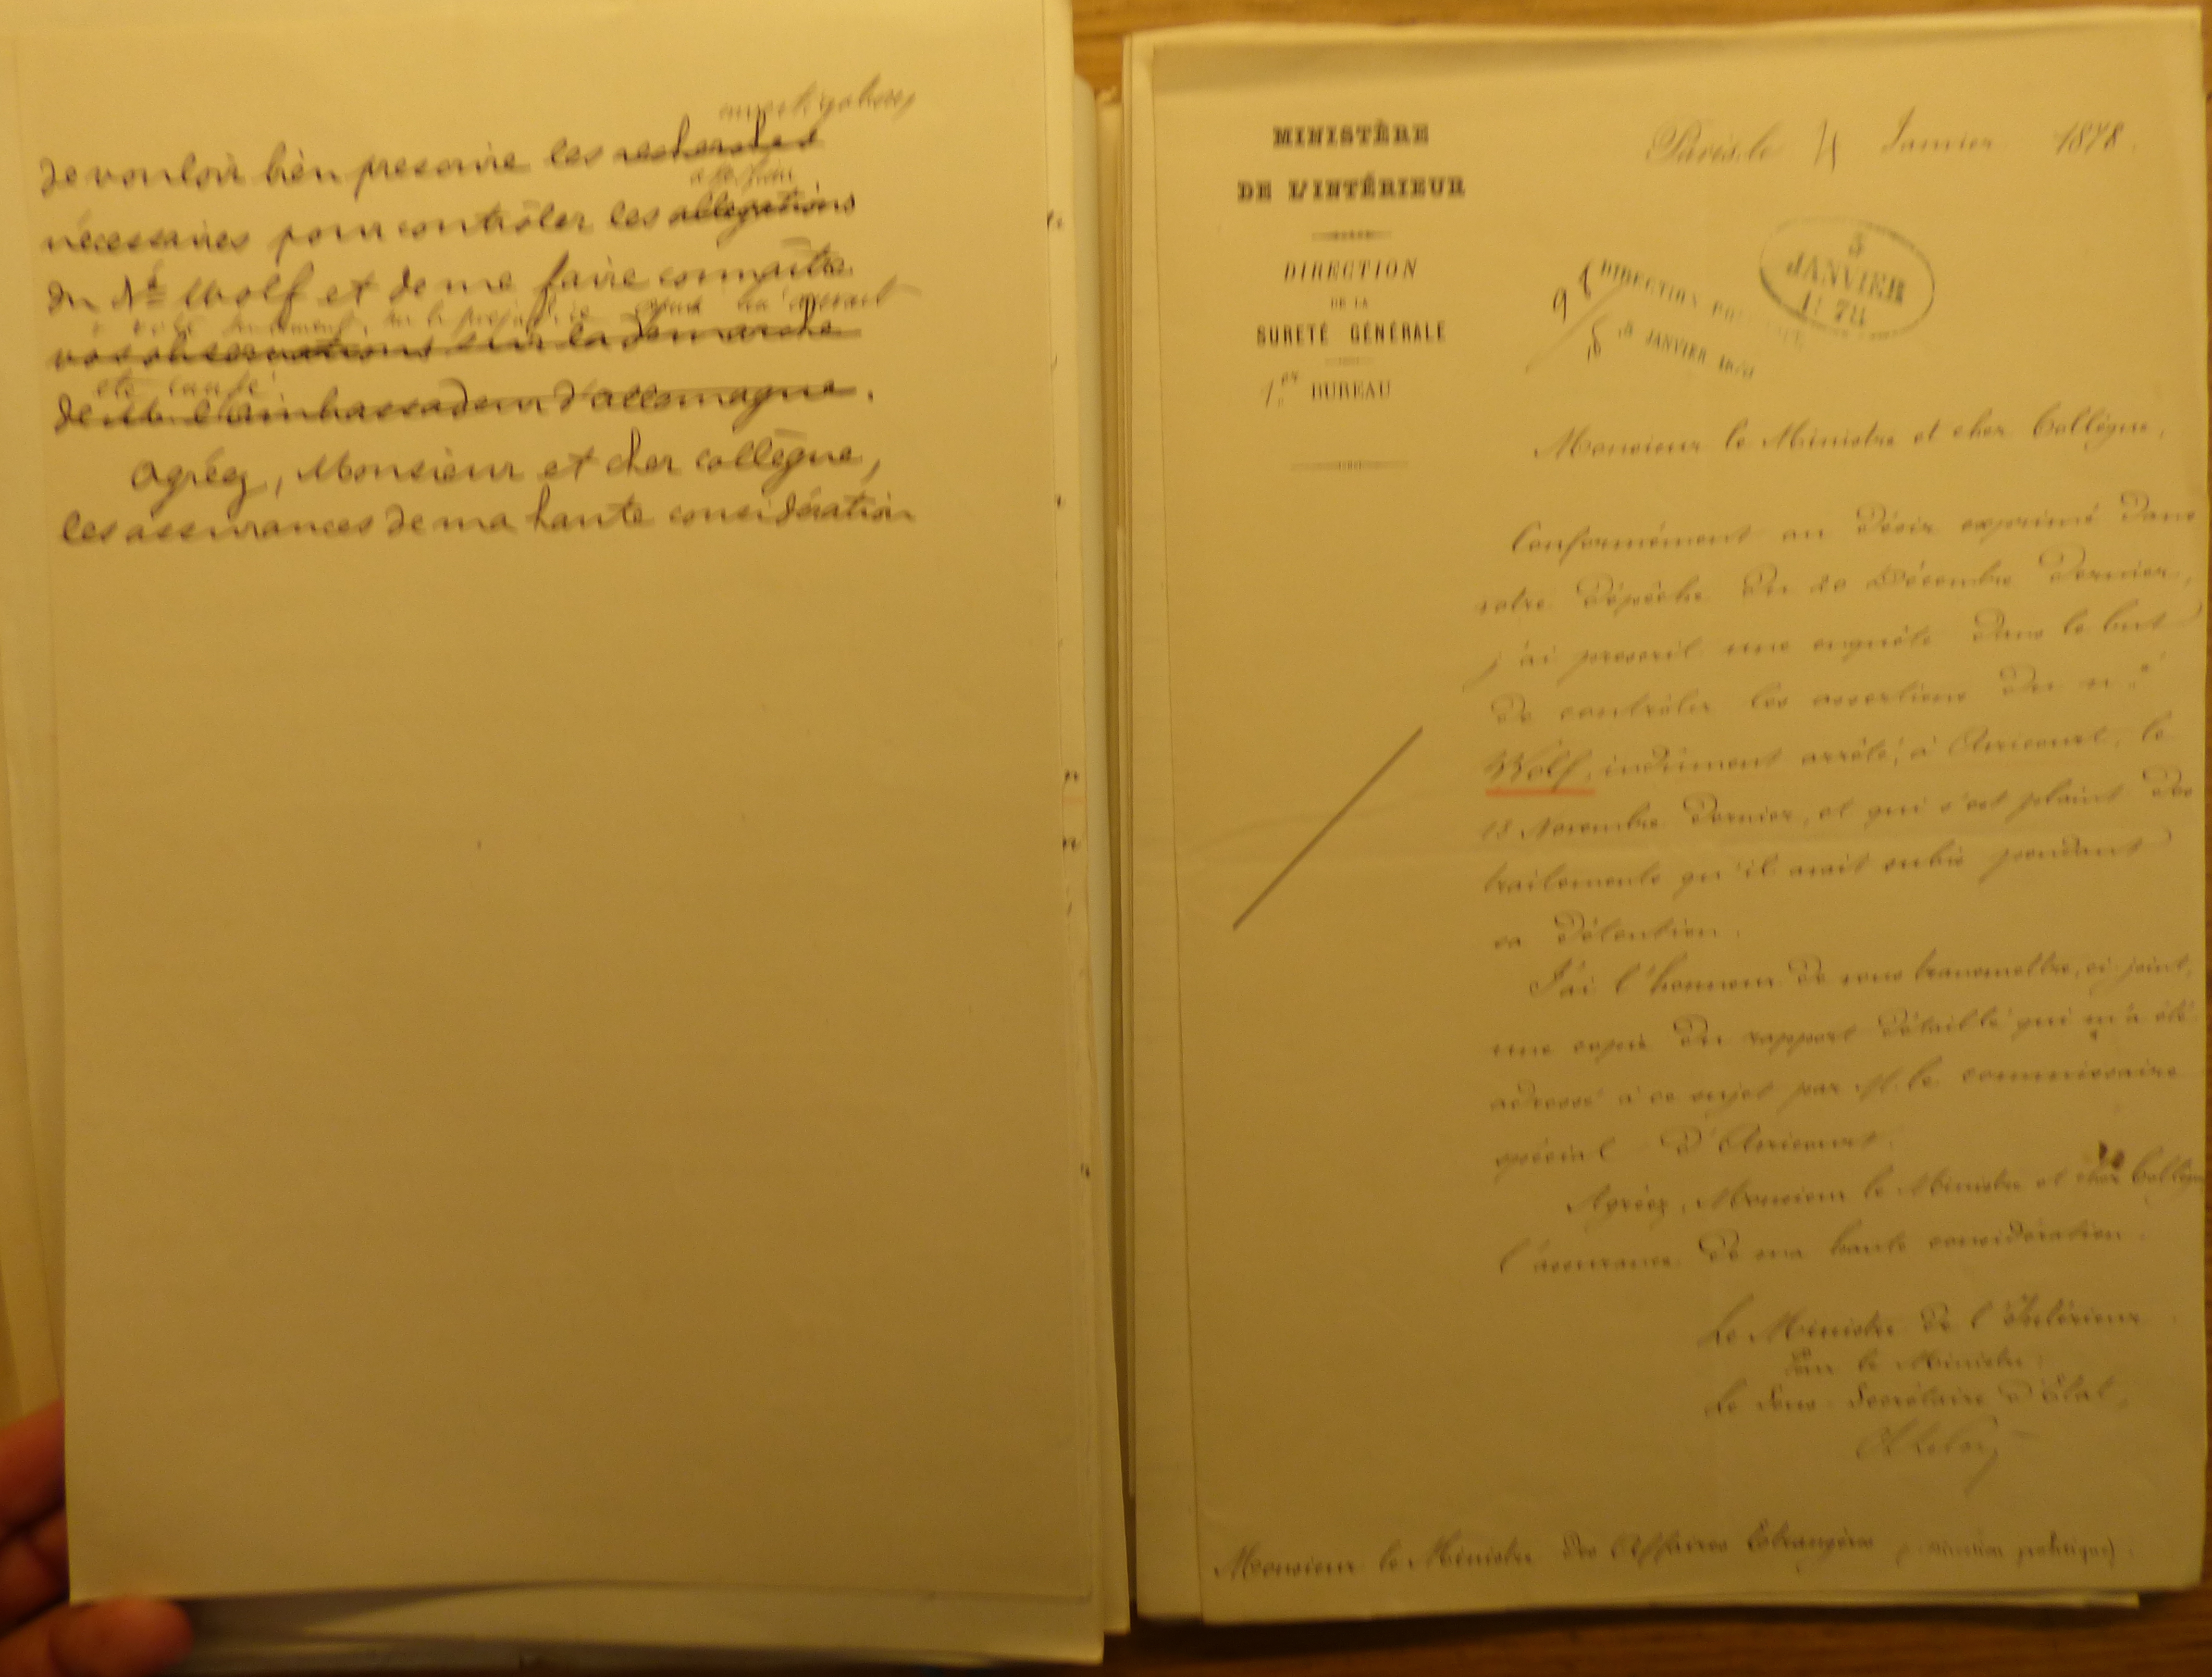 investigations
de vouloir bien prescrire les recherches
assertions
nécessaires pour contrôler les allégations
du Né Wolf et de me faire connaître
vos observations sur la démarche
été causé
de M. l'ambassadeur d'allemagne.
Agréez, Monsieur et cher collègue,
les assurances de ma haute considération
MINISTÈRE
DE L'INTÉRIEUR
DIRECTION
DE LA
SURETÉ GÉNÉRALE
1er BUREAU
Paris, le 4 Janvier 1878.
5
JANVIER
1878
DIRECTION POLITIQUE
5 JANVIER 1878
Monsieur le Ministre et cher Collègue,
Conformément au désir exprimé dans
votre dépêche du 20 Décembre dernier,
j'ai prescrit une enquête dans le but
de contrôler les assertions du né
Wolf, indûment arrêté, à Avricourt, le
18 Novembre dernier, et qui s'est plaint des
traitements qu'il avait subis pendant
sa détention.
J'ai l'honneur de vous transmettre, ci-joint,
une copie du rapport détaillé qui m'a été
adressé à ce sujet par M. le commissaire
spécial d'Avricourt.
Agréez, Monsieur le Ministre et cher Collègue
l'assurance de ma haute considération.
Le Ministre de l'Intérieur
Pour le Ministre:
Le Sous-Secrétaire d'État,
Monsieur le Ministre des Affaires Etrangères (Direction politique).